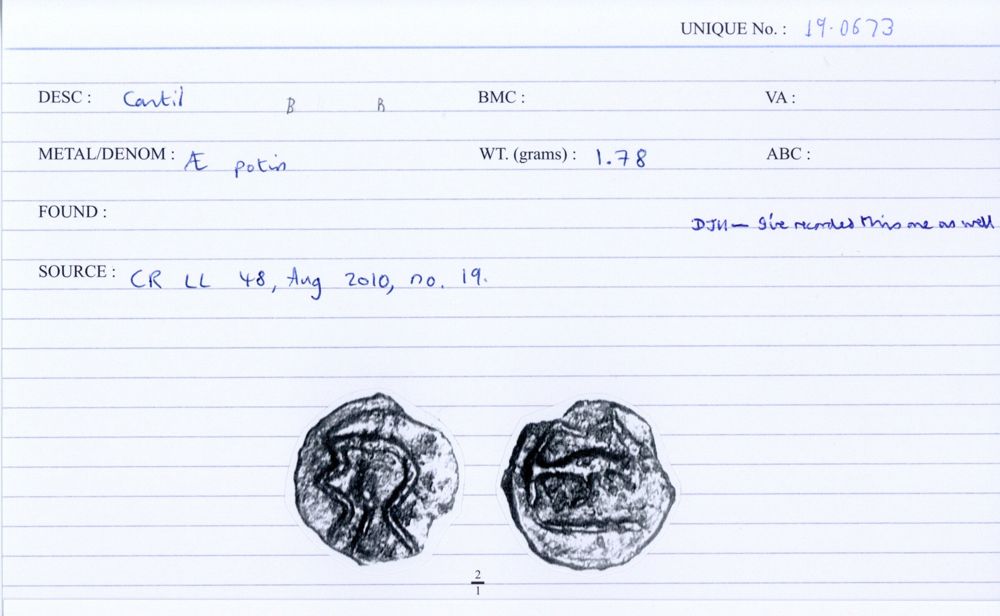 UNIQUE No. : 19-0673
DESC : Cantil B B BMC : VA :
METAL/DENOM : Æ potin WT. (grams) : 1.78 ABC :
FOUND :
DJH — I've recorded this one as well
SOURCE : CR LL 48, Aug 2010, no. 19.
2
1